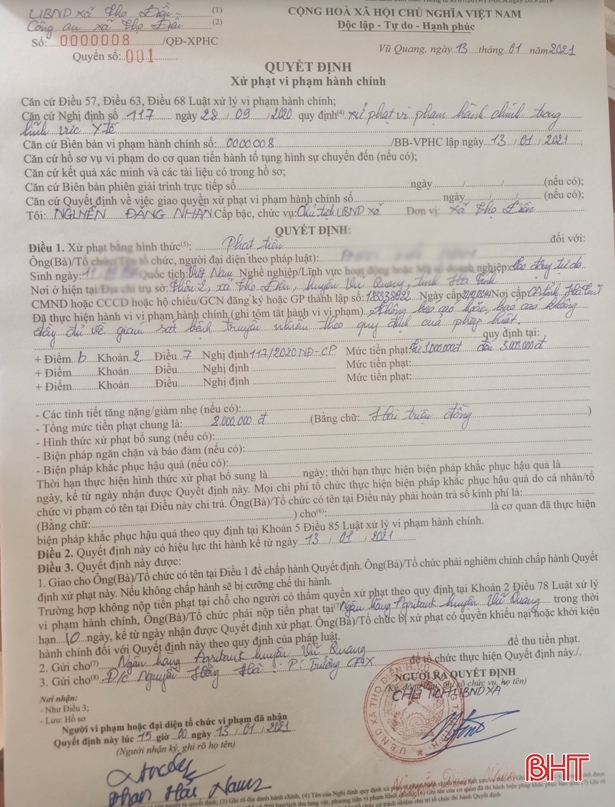 UBND xã Thọ Điền (1)
Công an xã Thọ Điền (2)
Số: 0000008 /QĐ-XPHC
Quyển số: 001
CỘNG HOÀ XÃ HỘI CHỦ NGHĨA VIỆT NAM
Độc lập - Tự do - Hạnh phúc
Vũ Quang, ngày 13 tháng 01 năm 2021
QUYẾT ĐỊNH
Xử phạt vi phạm hành chính
Căn cứ Điều 57, Điều 63, Điều 68 Luật xử lý vi phạm hành chính;
Căn cứ Nghị định số 117 ngày 28 / 09 / 2020 quy định(4) xử phạt vi phạm hành chính trong
lĩnh vực Y tế
Căn cứ Biên bản vi phạm hành chính số: 0000008 /BB-VPHC lập ngày 13 / 01 / 2021
Căn cứ hồ sơ vụ vi phạm do cơ quan tiến hành tố tụng hình sự chuyển đến (nếu có);
Căn cứ kết quả xác minh và các tài liệu có trong hồ sơ;
Căn cứ Biên bản phiên giải trình trực tiếp số ngày / / (nếu có);
Căn cứ Quyết định về việc giao quyền xử phạt vi phạm hành chính số ngày / / (nếu có);
Tôi: NGUYỄN ĐĂNG NHÂN Cấp bậc, chức vụ: Chủ tịch UBND xã Đơn vị: xã Thọ Điền
QUYẾT ĐỊNH:
Điều 1. Xử phạt bằng hình thức(5): Phạt tiền đối với:
Ông(Bà)/Tổ chức/ tổ chức, người đại diện theo pháp luật):
Sinh ngày: 11 Quốc tịch: Việt Nam Nghề nghiệp/Lĩnh vực hoạt động hoặc Mã số doanh nghiệp: Lao động tự do
Nơi ở hiện tại/Địa chỉ trụ sở: Thôn 2, xã Thọ Điền, huyện Vũ Quang, tỉnh Hà Tĩnh
CMND hoặc CCCD hoặc hộ chiếu/GCN đăng ký hoặc GP thành lập số: Ngày cấp Nơi cấp CA tỉnh Hà Tĩnh
Đã thực hiện hành vi vi phạm hành chính (ghi tóm tắt hành vi vi phạm). Không báo cáo hoặc báo cáo không
đầy đủ về giám sát bệnh truyền nhiễm theo quy định của pháp luật.
quy định tại:
+ Điểm b Khoản 2 Điều 7 Nghị định 117/2020 NĐ-CP Mức tiền phạt: từ 1.000.000đ đến 3.000.000đ
+ Điểm Khoản Điều Nghị định Mức tiền phạt:
+ Điểm Khoản Điều Nghị định Mức tiền phạt:
- Các tình tiết tăng nặng/giảm nhẹ (nếu có):
- Tổng mức tiền phạt chung là: 2.000.000 đ (Bằng chữ: Hai triệu đồng )
- Hình thức xử phạt bổ sung (nếu có):
- Biện pháp ngăn chặn và bảo đảm (nếu có):
- Biện pháp khắc phục hậu quả (nếu có):
Thời hạn thực hiện hình thức xử phạt bổ sung là ngày; thời hạn thực hiện biện pháp khắc phục hậu quả là
ngày, kể từ ngày nhận được Quyết định này. Mọi chi phí tổ chức thực hiện biện pháp khắc phục hậu quả do cá nhân/tổ
chức vi phạm có tên tại Điều này chi trả. Ông(Bà)/Tổ chức có tên tại Điều này phải hoàn trả số kinh phí là:
(Bằng chữ: ) cho(6): là cơ quan đã thực hiện
biện pháp khắc phục hậu quả theo quy định tại Khoản 5 Điều 85 Luật xử lý vi phạm hành chính.
Điều 2. Quyết định này có hiệu lực thi hành kể từ ngày 13 / 01 / 2021
Điều 3. Quyết định này được:
1. Giao cho Ông(Bà)/Tổ chức có tên tại Điều 1 để chấp hành Quyết định. Ông(Bà)/Tổ chức phải nghiêm chỉnh chấp hành Quyết
định xử phạt này. Nếu không chấp hành sẽ bị cưỡng chế thi hành.
Trường hợp không nộp tiền phạt tại chỗ cho người có thẩm quyền xử phạt theo quy định tại Khoản 2 Điều 78 Luật xử lý
vi phạm hành chính, Ông(Bà)/Tổ chức phải nộp tiền phạt tại Ngân hàng Agribank huyện Vũ Quang trong thời
hạn 10 ngày, kể từ ngày nhận được Quyết định xử phạt. Ông(Bà)/Tổ chức bị xử phạt có quyền khiếu nại hoặc khởi kiện
hành chính đối với Quyết định này theo quy định của pháp luật.
2. Gửi cho(7) Ngân hàng Agribank huyện Vũ Quang để thu tiền phạt.
3. Gửi cho(8) Đ/c Nguyễn Hồng Hải P. Trưởng CAX để tổ chức thực hiện Quyết định này./.
Nơi nhận:
- Như Điều 3;
- Lưu: Hồ sơ
Người vi phạm hoặc đại diện tổ chức vi phạm đã nhận
Quyết định này lúc 15 giờ 00 ngày 13 / 01 / 2021
(Người nhận ký, ghi rõ họ tên)
Phan Hải Nam
NGƯỜI RA QUYẾT ĐỊNH
CHỦ TỊCH UBND XÃ
BHT